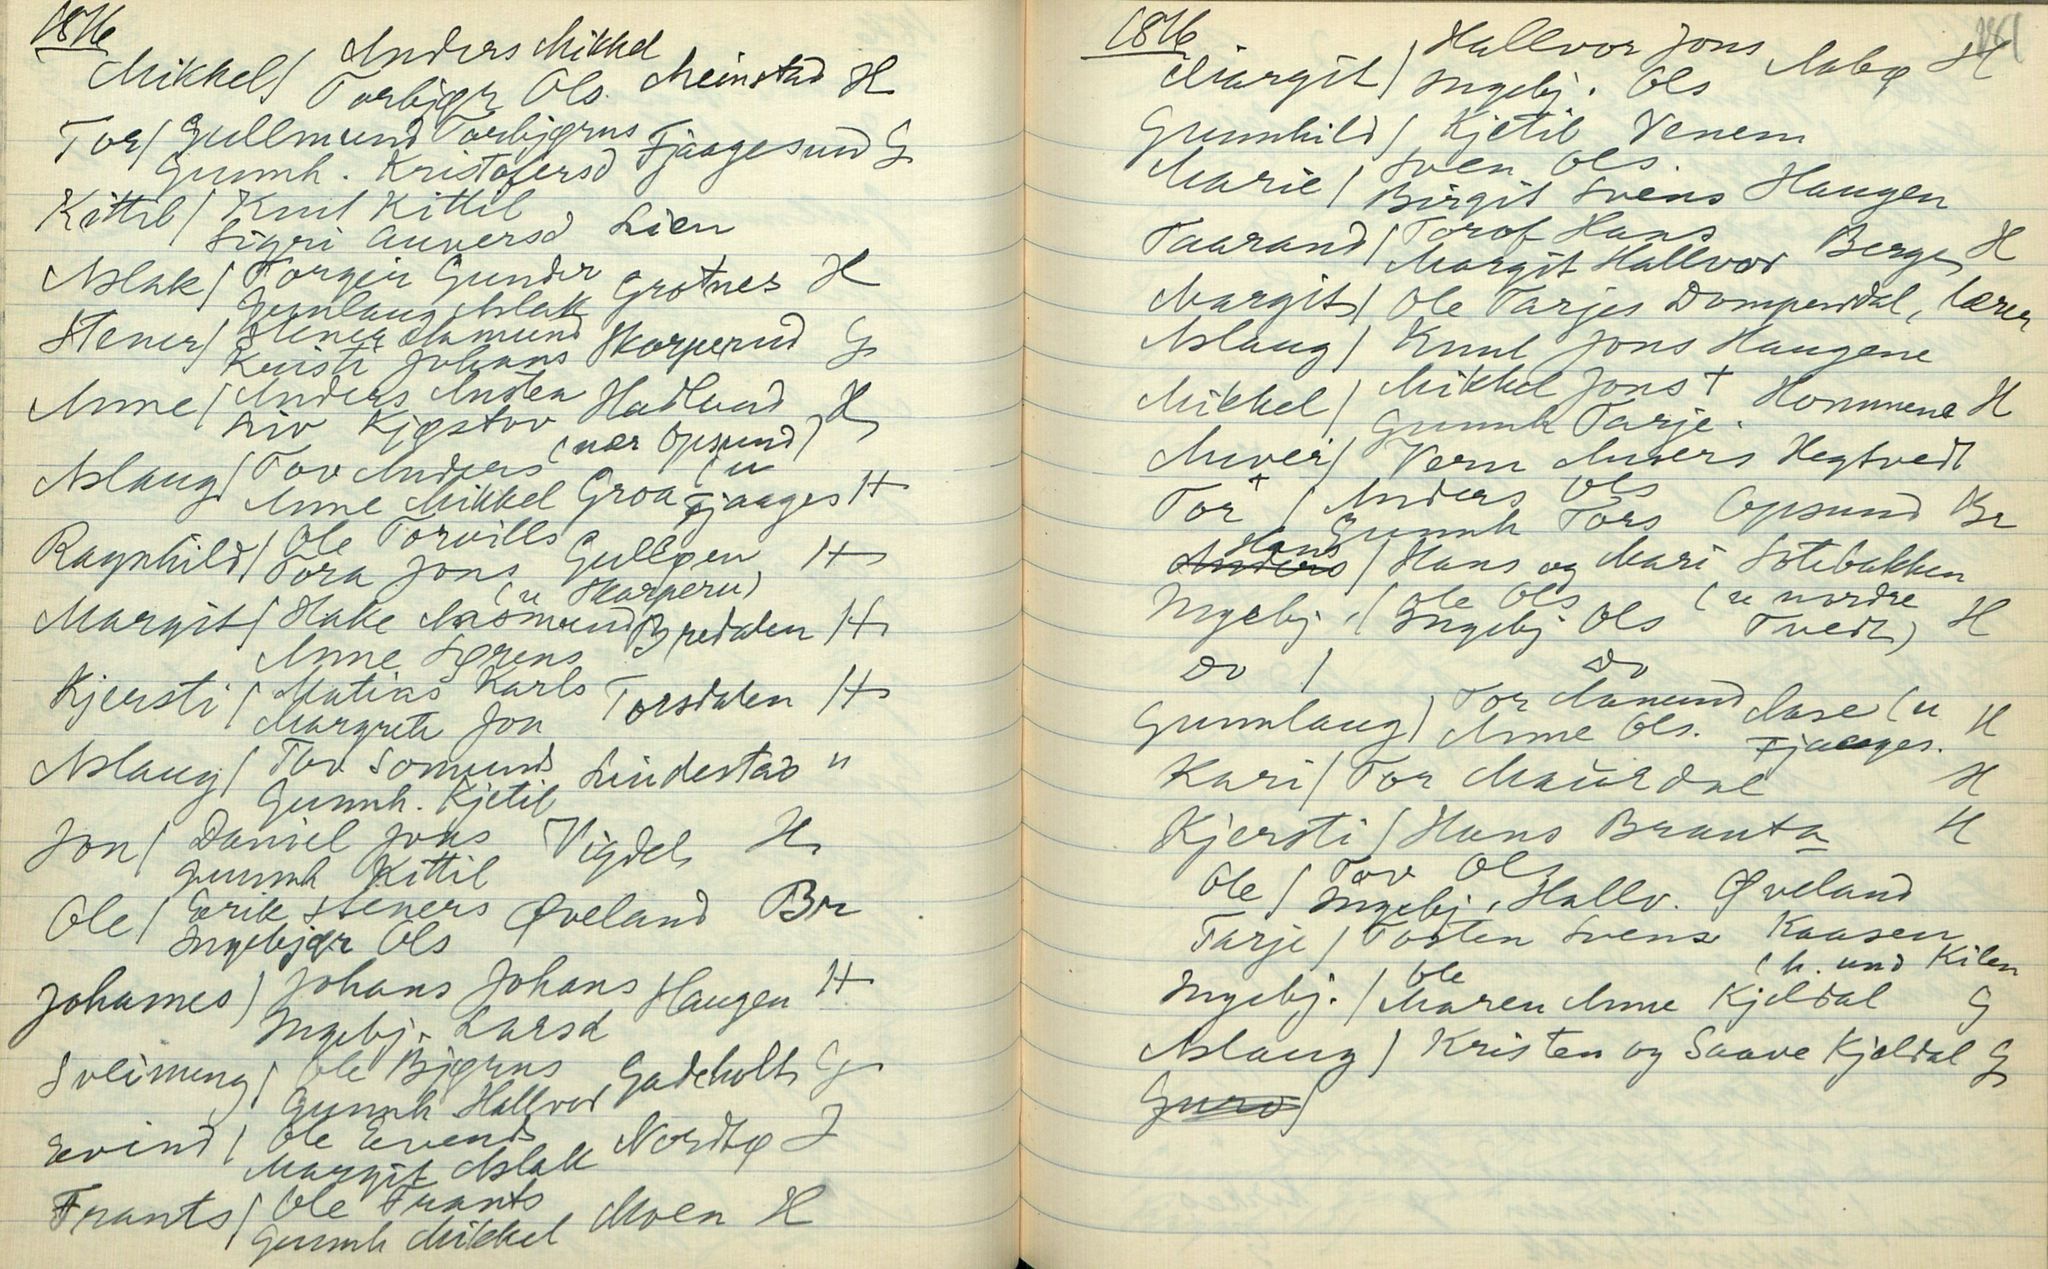 1876
Anders Mikkel
Mikkel / Torbjør Ols. Meinstad H
Tor / Gullmund Torbjørns Fjaagesund G
Gunnh. Kristofersd
Kittil / Knut Kittil
Sigri Auversd Lien
Aslak / Torgeir Gunder Grotnes H
Gunlaug Aslak
Stener / Stener Aamund Skorperud G
Kirsti Johans
Anne / Anders Austen Hadlend H
Liv Kjøstov (nær Opsund)
Aslaug / Tov Anders (u
Anne Mikkel Groa Fjaages H
Ragnhild / Ole Torvills
Tora Jons Gulløen H
(u Skorperu)
Margit / Hake Aasmund Bredalen H
Anne Sørens
Kjersti / Matias Karls Torsdalen H
Margrete Jon
Aslaug / Tov Somunds Lindestad "
Gunnh. Kjetil
Jon / Daniel Jons Vigdel H
Gunnh Kittil
Ole / Eerik Steners Øveland Br
Ingebjør Ols
Johannes / Johans Johans Haugen H
Ingebj. Larsd
Sveinung / Ole Bjørns Gadeholt G
Gunnh Hallvor
Evind / Ole Evends Nordbø J
Margit Aslak
Frants / Ole Frants Moen H
Gunnh Mikkel
1876
Hallvor Jons Aabø H
Margit / Ingebj. Ols
Gunnhild / Kjetil Venem
Marie / Sven Ols.
Birgit Svens Haugen
Taarand / Torof Hans Berge H
Margit Hallvor
Margit / Ole Tarjes Dompendal, lærer
Aslaug / Knut Jons Haugene
Mikkel / Mikkel Jons + Hommene H
Gunnh Tarje.
Auver / Vern Auvers Hegtvedt
Tor + / Anders Ols Opsund Br
Gunnh Tors
Hans
Anders / Hans og Mari Sotebakken
Ingebj. / Ole Ols (u nordre
Ingebj Ols Tvedt) H
Do / Do
Gunnlaug / Tor Aamund Aase (u H
Anne Ols. Fjaages.
Kari / Tor Maurdal H
Kjersti / Hans Branta H
Ole / Tov Ols
Ingebj. Hallv. Øveland
Tarje / Tosten Svens Kaasen
(h. und Kilen
Ingebj. / Ole
Maren Anne Kjeldal G
Aslaug / Kristen og Saave Kjeldal G
Guro /